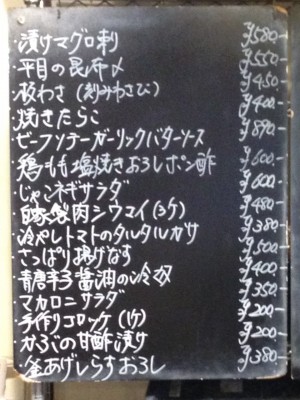 ・漬けマグロ刺 ¥580-
・平目の昆布〆 ¥550-
・板わさ(刻みわさび) ¥450-
・焼きたらこ ¥400-
・ビーフソテーガーリックバターソース ¥890-
・鶏もも塩焼きおろしポン酢 ¥600-
・じゃこネギサラダ ¥600-
・自家製肉シウマイ(3ケ) ¥480-
・冷やしトマトのタルタルガサ ¥380-
・さっぱり揚げなす ¥500-
・青唐辛子醤油の冷奴 ¥400-
・マカロニサラダ ¥350-
・手作りコロッケ(1ケ) ¥200-
・かぶの甘酢漬け ¥200-
・釜あげしらすおろし ¥380-